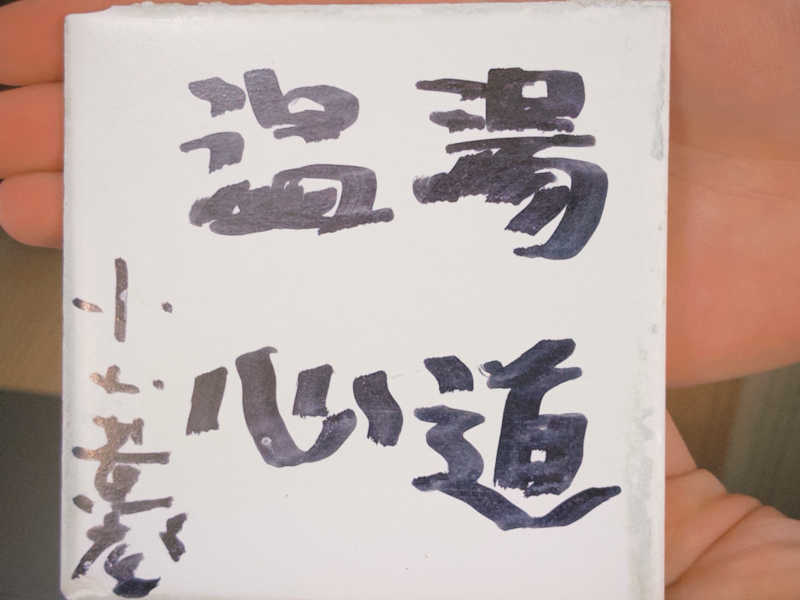 湯道
温心
小山薫堂